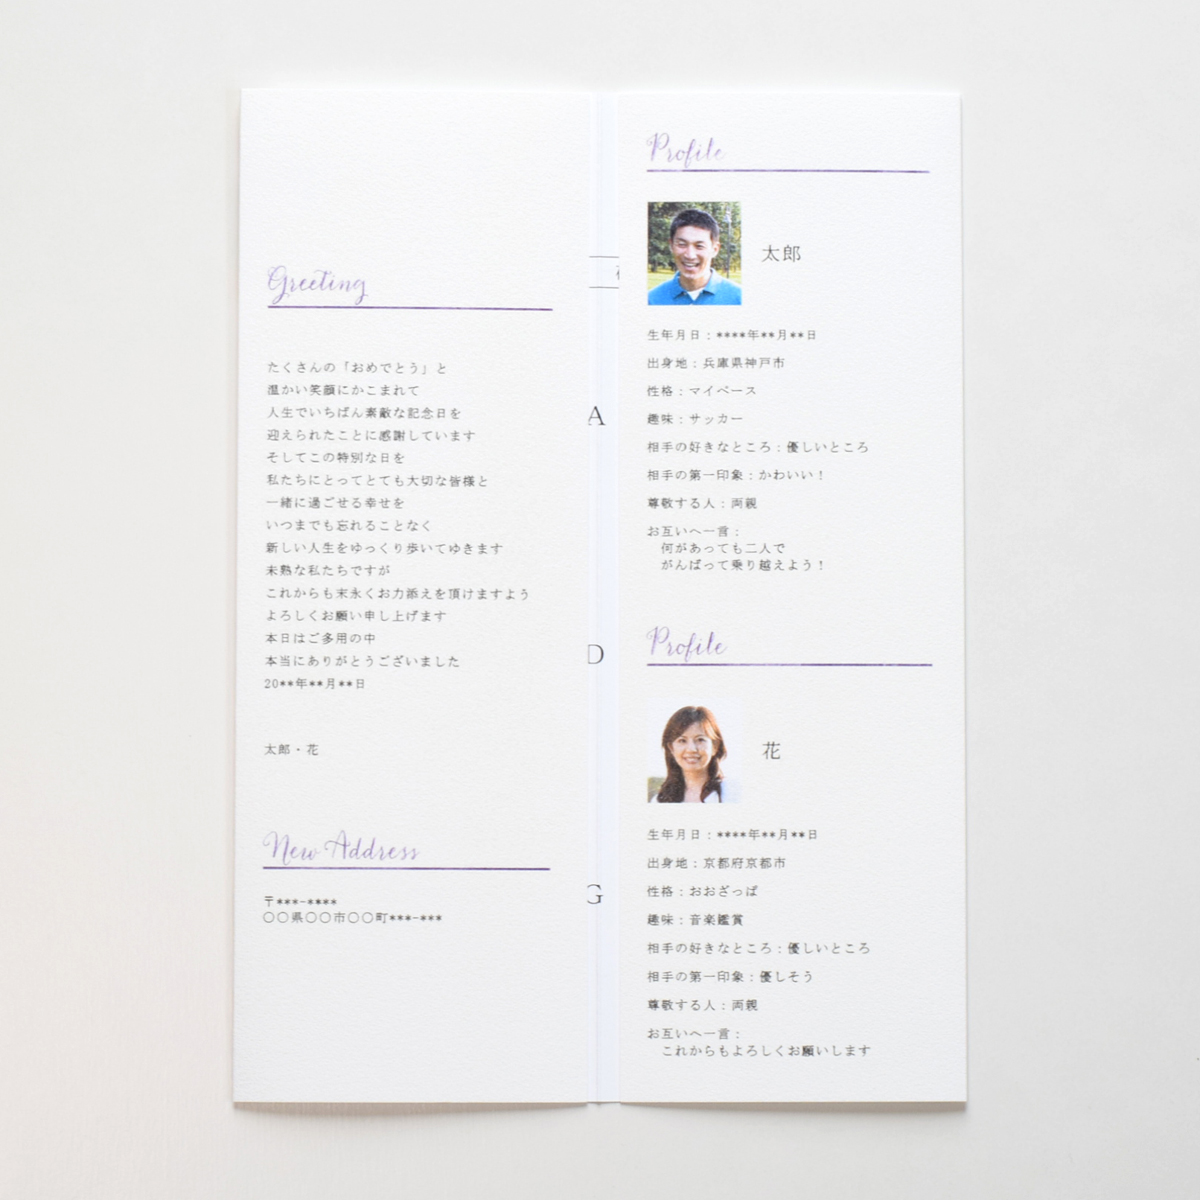 Greeting
たくさんの「おめでとう」と
温かい笑顔にかこまれて
人生でいちばん素敵な記念日を
迎えられたことに感謝しています
そしてこの特別な日を
私たちにとってとても大切な皆様と
一緒に過ごせる幸せを
いつまでも忘れることなく
新しい人生をゆっくり歩いてゆきます
未熟な私たちですが
これからも末永くお力添えを頂けますよう
よろしくお願い申し上げます
本日はご多用の中
本当にありがとうございました
20**年**月**日
太郎・花
New Address
〒***-****
○○県○○市○○町***-***
A
D
G
Profile
太郎
生年月日：****年**月**日
出身地：兵庫県神戸市
性格：マイペース
趣味：サッカー
相手の好きなところ：優しいところ
相手の第一印象：かわいい！
尊敬する人：両親
お互いへ一言：
何があっても二人で
がんばって乗り越えよう！
Profile
花
生年月日：****年**月**日
出身地：京都府京都市
性格：おおざっぱ
趣味：音楽鑑賞
相手の好きなところ：優しいところ
相手の第一印象：優しそう
尊敬する人：両親
お互いへ一言：
これからもよろしくお願いします